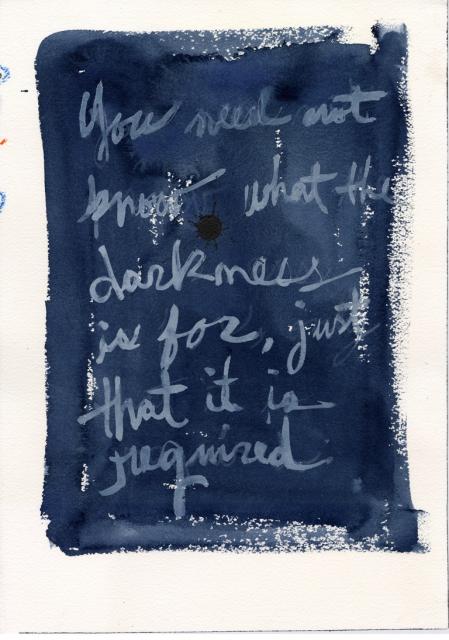 You need not
know what the
darkness
is for, just
that it is
required